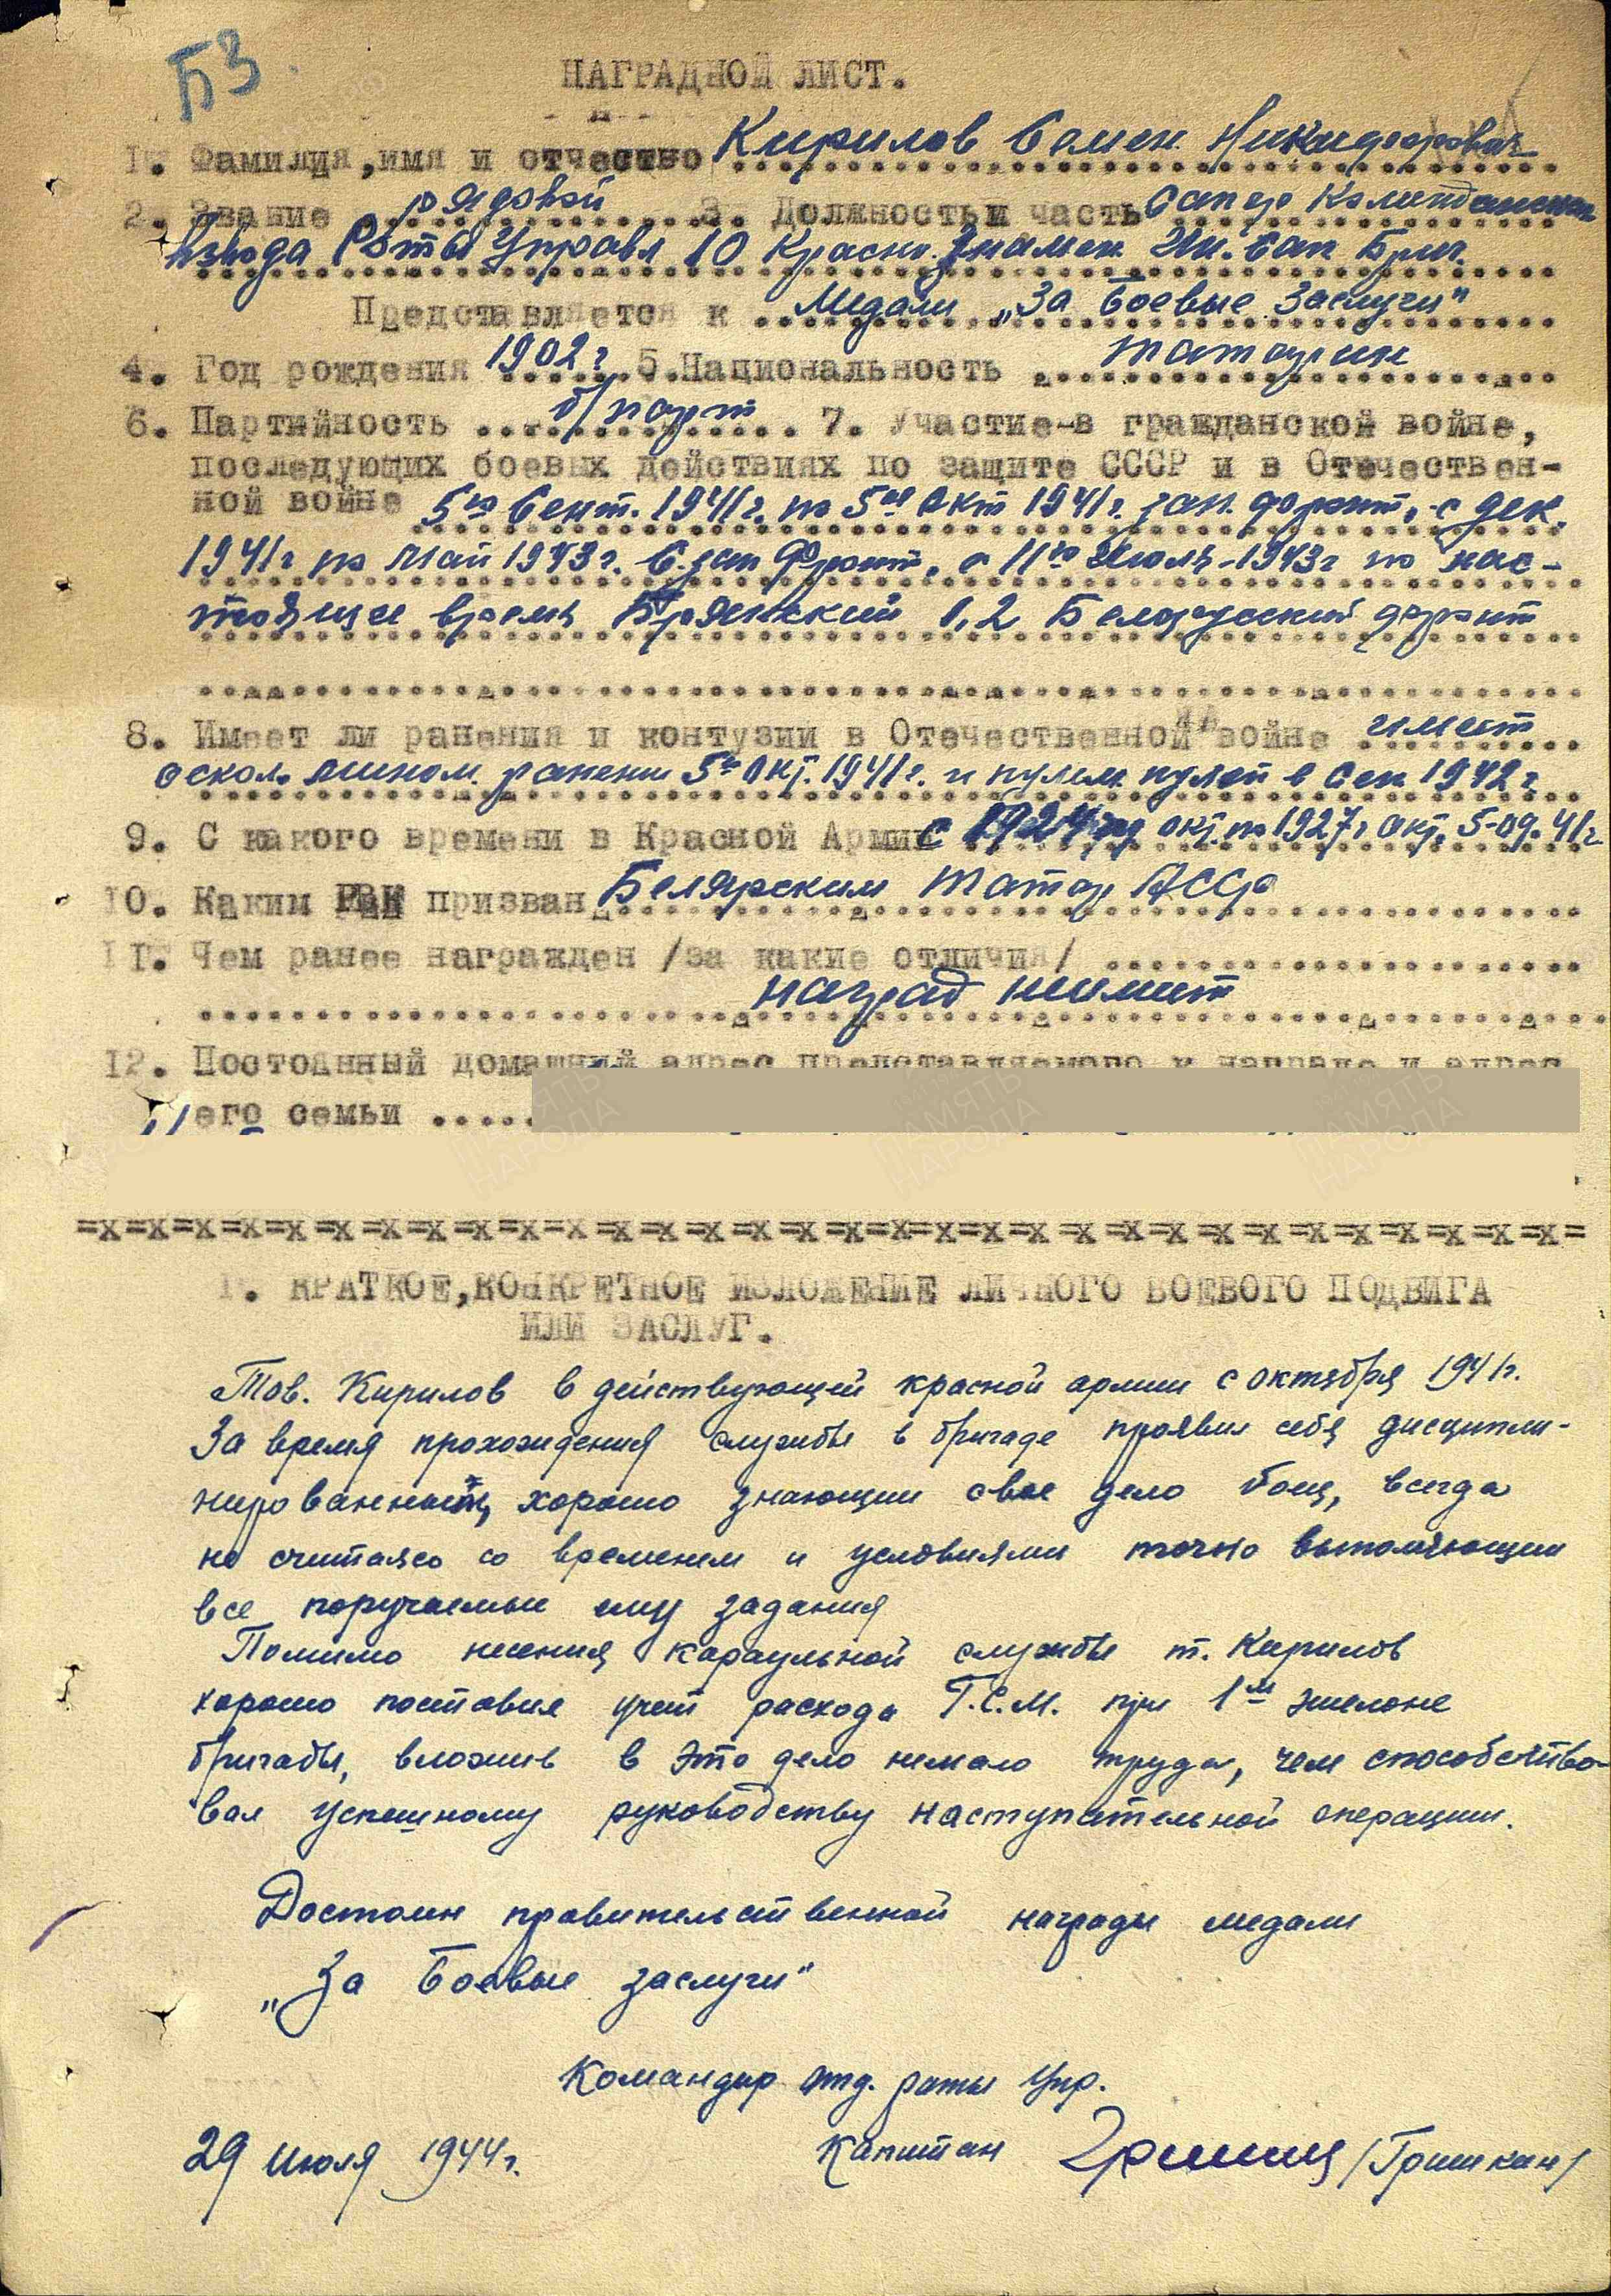 БЗ
НАГРАДНОЙ ЛИСТ.
1. Фамилия, имя и отчество Кирилов Семен Никифорович
2. Звание рядовой 3. Должность и часть Сапер Комендантск
Взвода Роты Управл 10 Красно.Знамен. Ин. Сап Бриг.
Представляется к Медали „За Боевые Заслуги"
4. Год рождения 1902 г 5. Национальность татарин
6. Партийность б/парт 7. Участие в гражданской войне,
последующих боевых действиях по защите СССР и в Отечествен-
ной войне 5го Сент. 1941г. по 5ое Окт 1941г. зап. фронт, с дек.
1941г по Май 1943г. С.зап Фронт, с 11го Июля-1943г по нас-
тоящее время Брянский 1,2 Белорусский фронт
8. Имеет ли ранения и контузии в Отечественной войне имеет
оскол. мином. ранени 5го Окт. 1941г. и пулем. пулей в Сен 1942г
9. С какого времени в Красной Армии с 1924 г окт. по 1927г Окт. 5-09.41г
10. Каким РВК призван Белярским Татар АССР
11. Чем ранее награжден /за какие отличия/
наград неимеет
12. Постоянный домашний адрес представляемого к награде и адрес
его семьи
=х=х=х=х=х=х=х=х=х=х=х=х=х=х=х=х=х=х=х=х=х=х=х=х=х=х=х=х=х=х=х=х=
1. КРАТКОЕ, КОНКРЕТНОЕ ИЗЛОЖЕНИЕ ЛИЧНОГО БОЕВОГО ПОДВИГА
ИЛИ ЗАСЛУГ.
Тов. Кирилов в действующей красной армии с октября 1941г.
За время прохождения службы в бригаде проявил себя дисципли-
нированный, хорошо знающий свое дело боец, всегда
не считаясь со временем и условиями точно выполняющий
все поручаемые ему задания
Помимо несения караульной службы т. Кирилов
хорошо поставил учет расхода Г.С.М. при 1м эшелоне
бригады, вложив в это дело немало труда, чем способство-
вал успешному руководству наступательной операции.
Достоин правительственной награды медали
„За Боевые заслуги"
Командир отд. роты Упр.
29 Июля 1944г. Капитан /Гришкин/
ПАМЯТЬ НАРОДА
ПАМЯТЬ НАРОДА
ПАМЯТЬ НАРОДА